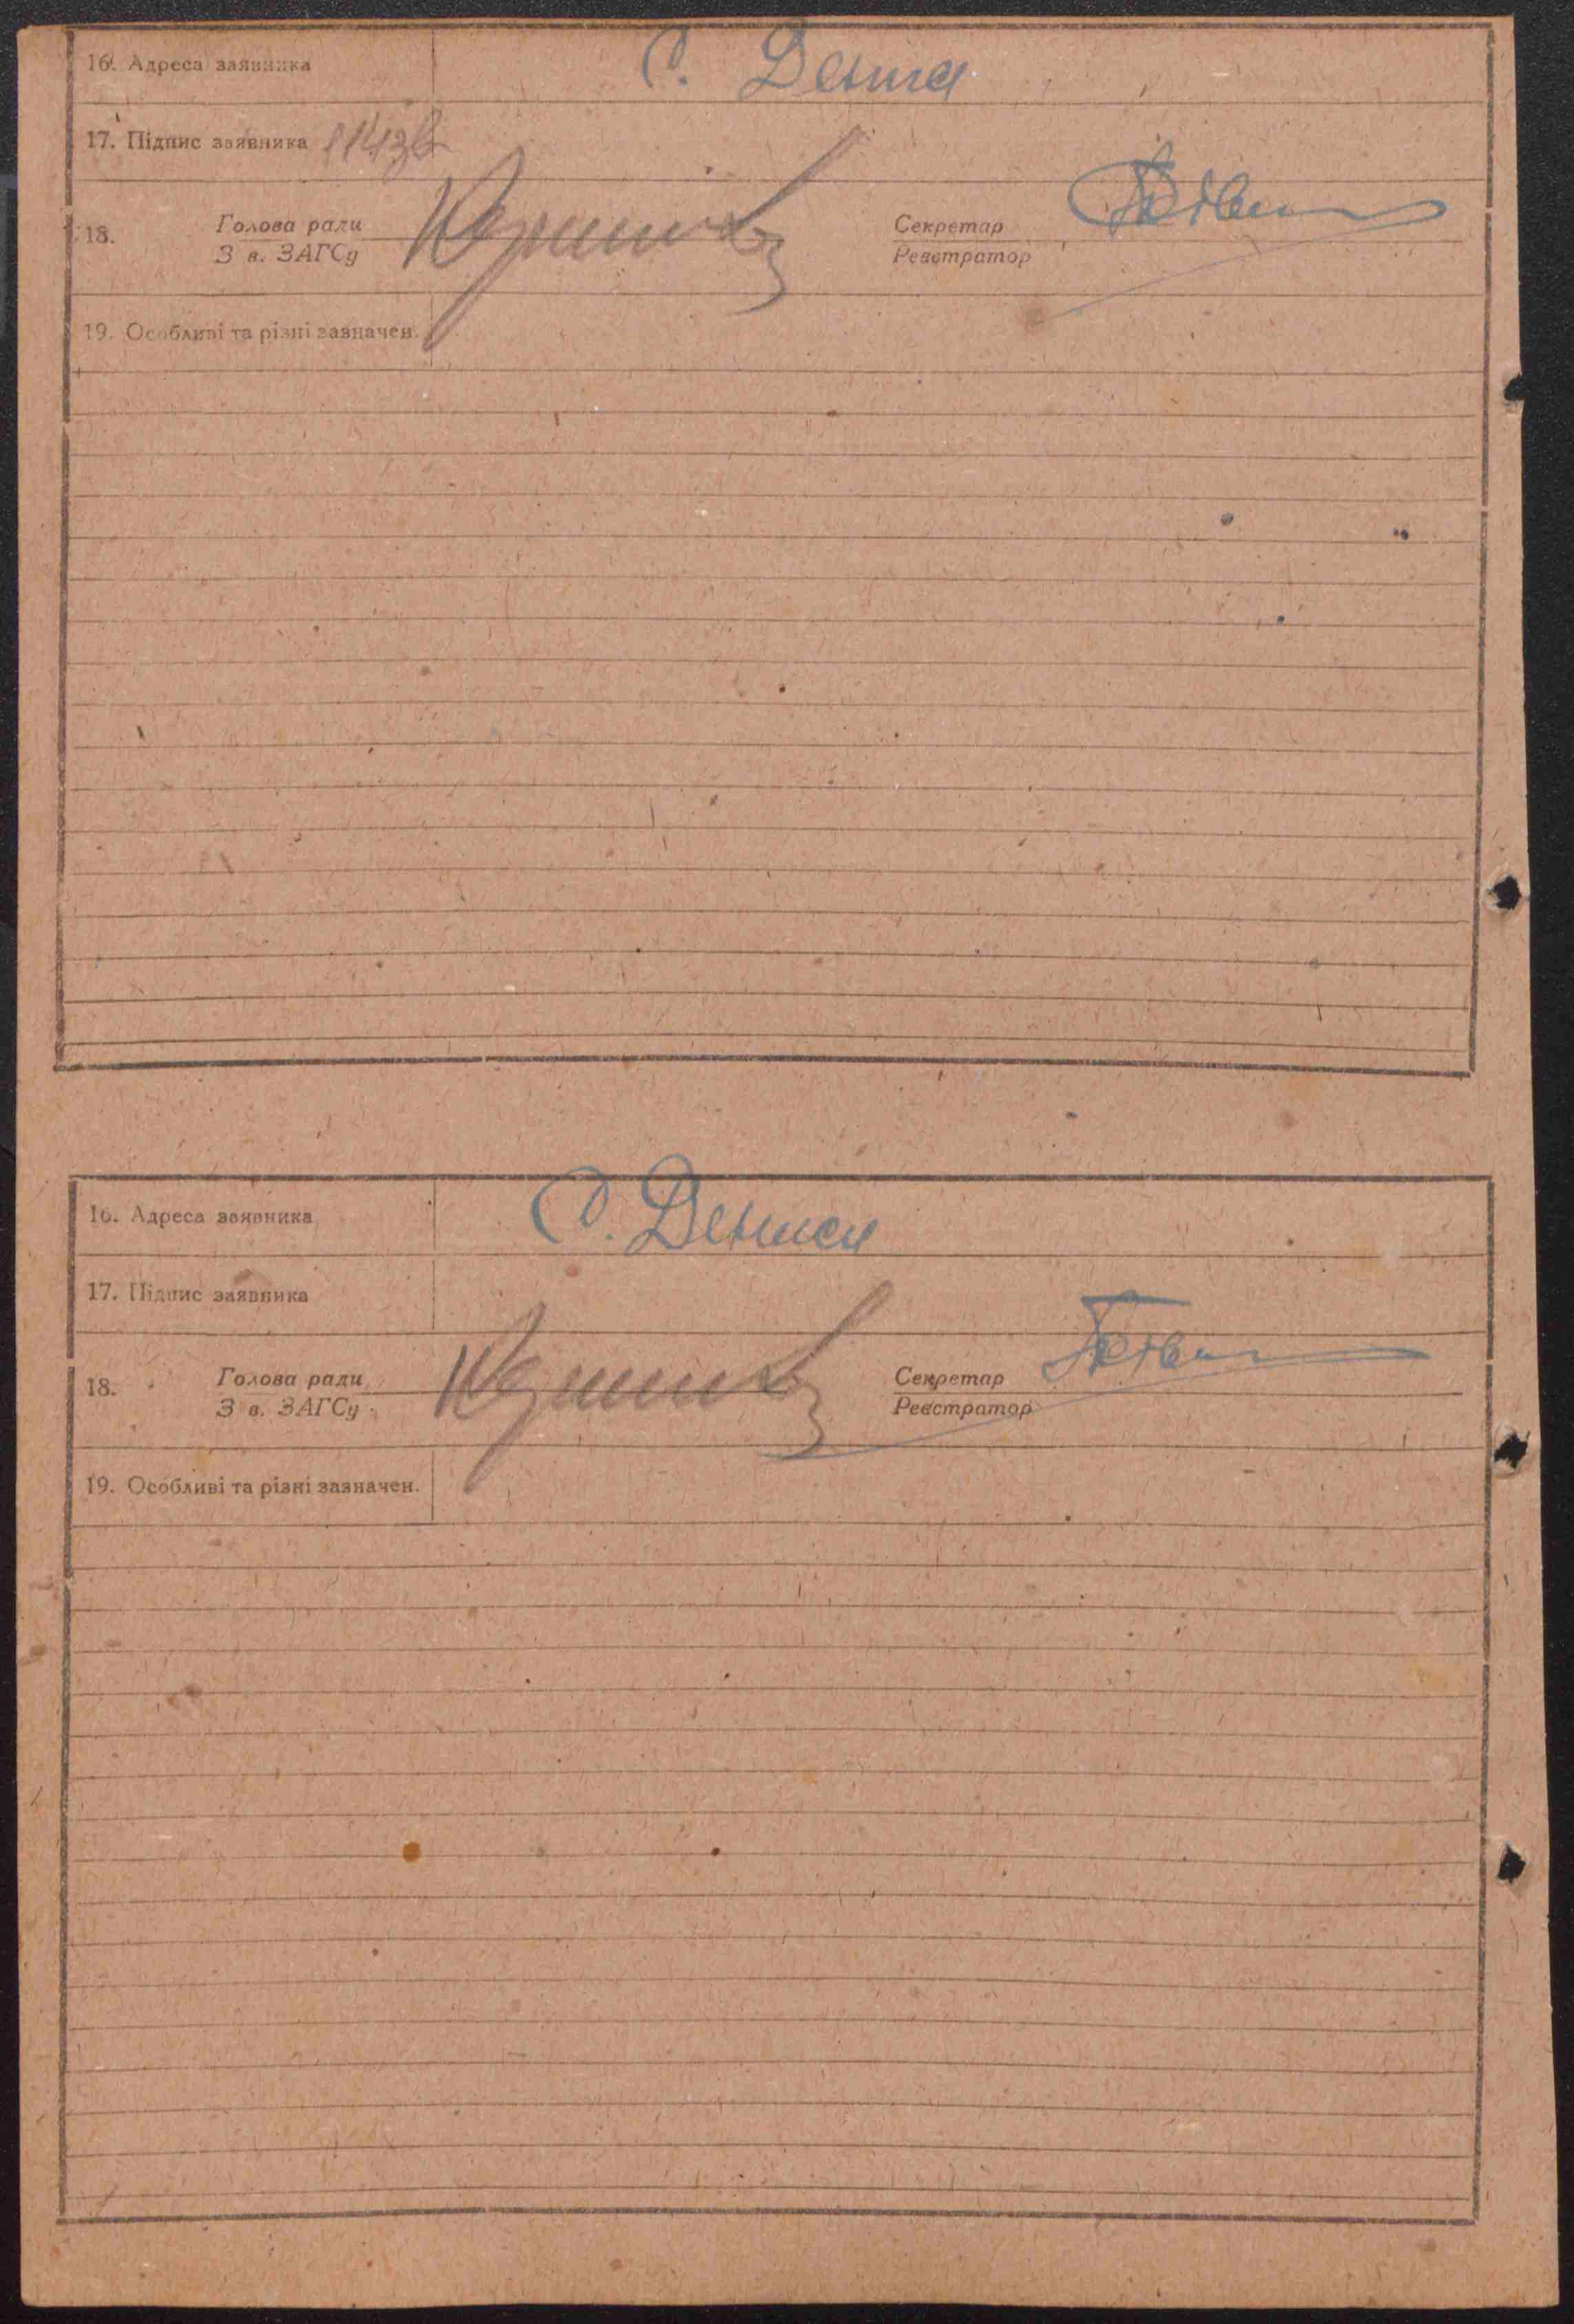 16. Адреса заявника С. Дениси
17. Підпис заявника
18. Голова ради Секретар
З в. ЗАГСу Реєстратор
19. Особливі та різні зазначен.
16. Адреса заявника С. Дениси
17. Підпис заявника
18. Голова ради Секретар
З в. ЗАГСу Реєстратор
19. Особливі та різні зазначен.